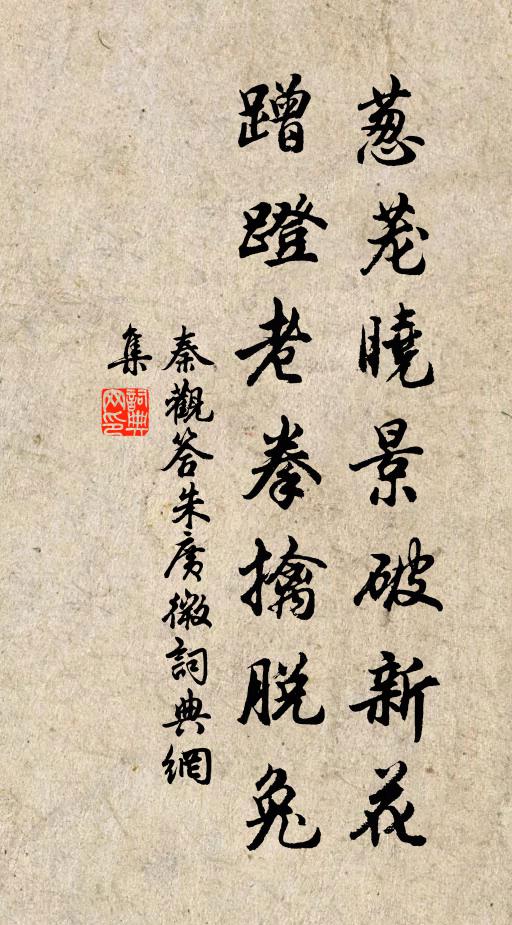 蔥蘢曉景破新花
蹭蹬老拳擒脱兔
秦觀答朱廣微詞典網
集
詞典
网印